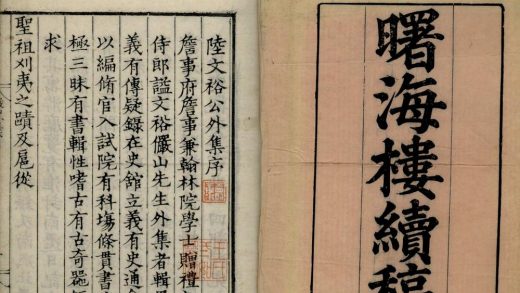 曙海樓續稿
陸文裕公外集序
詹事府詹事兼翰林院學士贈禮
侍郎諡文裕儼山先生外集者輯
義有傳疑錄在史舘立義有史通
以編脩官入試院有科塲條貫書
極三昧有書輯性嗜古有古奇器
求
聖祖刈夷之蹟及扈從